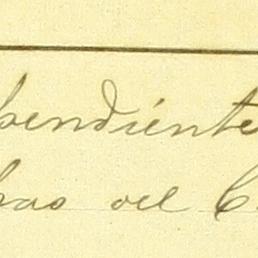 pendiente
has del C